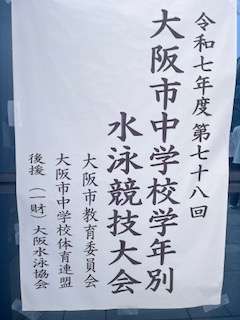 令和七年度第七十八回
大阪市中学校学年別
水泳競技大会
大阪市教育委員会
大阪市中学校体育連盟
後援（一財）大阪水泳協会